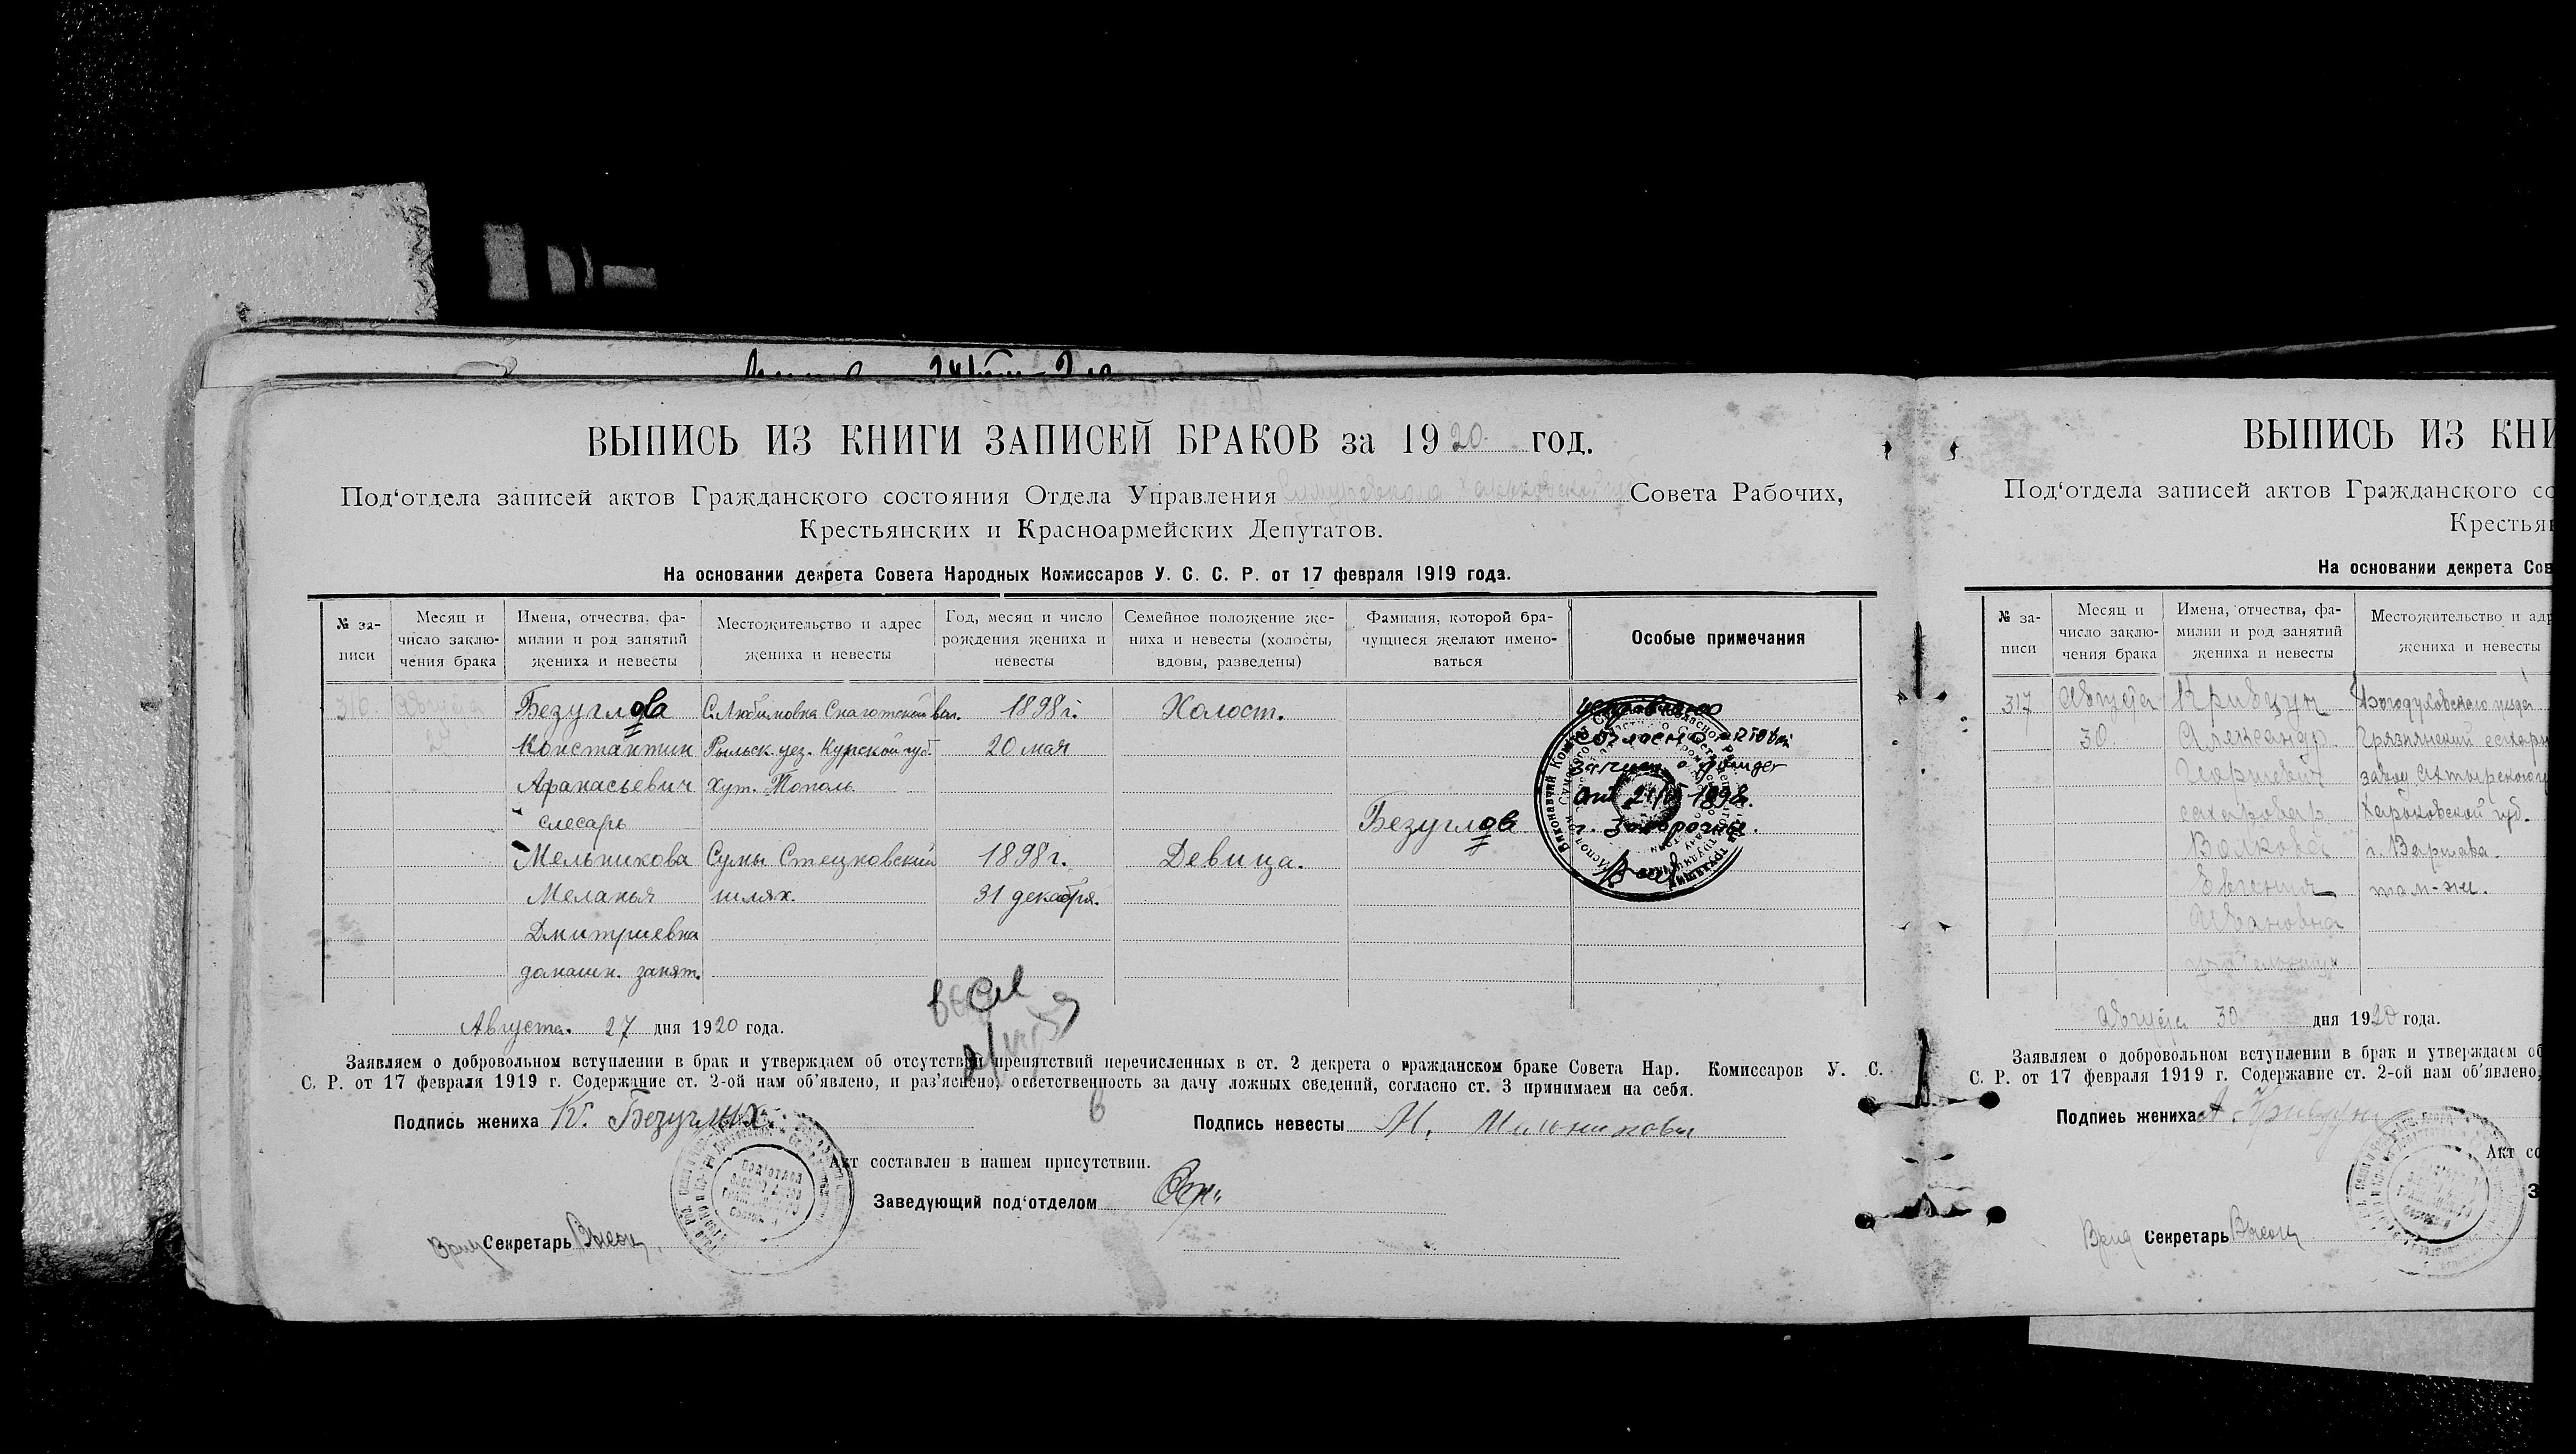 ВЫПИСЬ ИЗ КНИГИ ЗАПИСЕЙ БРАКОВ за 1920 год.
Под‘отдела записей актов Гражданского состояния Отдела Управления Харьковской Совета Рабочих,
Крестьянских и Красноармейских Депутатов.
На основании декрета Совета Народных Комиссаров У. С. С. Р. от 17 февраля 1919 года.
№ за-
писи
Месяц и
число заклю-
чения брака
Имена, отчества, фа-
милии и род занятий
жениха и невесты
Местожительство и адрес
жениха и невесты
Год, месяц и число
рождения жениха и
невесты
Семейное положение же-
ниха и невесты (холосты,
вдовы, разведены)
Фамилия, которой бра-
чущиеся желают имено-
ваться
Особые примечания
316 Августа Безуглов С. Любимовка Снаготской вол. 1898 г. Холост. исправлено
27 Константин Рыльск. уез. Курской губ. 20 мая согласно
Афанасьевич Хут. Тополь
слесарь Безуглов г. Запорожье.
Мельникова Сумы Стецковский 1898 г. Девица.
Меланья шлях. 31 декабря.
Дмитриевна
домашн. занят.
Августа. 27 дня 1920 года.
Заявляем о добровольном вступлении в брак и утверждаем об отсутствии препятствий перечисленных в ст. 2 декрета о гражданском браке Совета Нар. Комиссаров У. С.
С. Р. от 17 февраля 1919 г. Содержание ст. 2-ой нам об‘явлено, и раз‘яснено, ответственность за дачу ложных сведений, согласно ст. 3 принимаем на себя.
Подпись жениха К. Безуглых. Подпись невесты М. Мельникова
Акт составлен в нашем присутствии.
Заведующий под‘отделом
Врид Секретарь
ВЫПИСЬ ИЗ КНИ
Под‘отдела записей актов Гражданского со
Крестьян
На основании декрета Сов
№ за-
писи
Месяц и
число заклю-
чения брака
Имена, отчества, фа-
милии и род занятий
жениха и невесты
Местожительство и адр
жениха и невесты
317 Августа Кривцун Богодуховского уезда
30 Александр
Георгиевич завод Ахтырского
Харьковской губ.
Волкова г. Варшава.
Евгения там-же.
Ивановна
Августа 30 дня 1920 года.
Заявляем о добровольном вступлении в брак и утверждаем об
С. Р. от 17 февраля 1919 г. Содержание ст. 2-ой нам об‘явлено,
Подпись жениха А. Кривцун
Акт со
З
Врид Секретарь